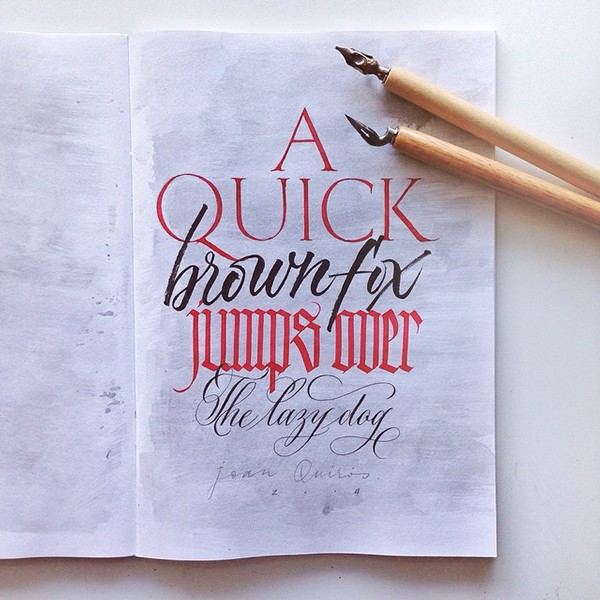 A
QUICK
brown fox
jumps over
The lazy dog
joan Quirós
2 . . 4